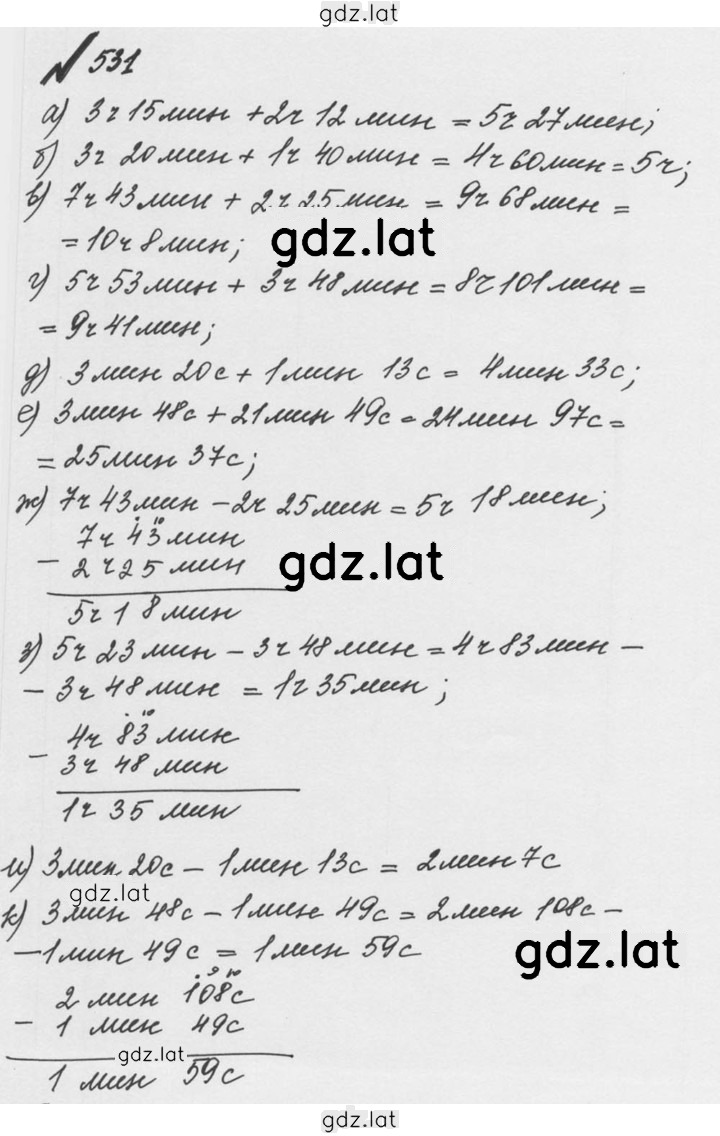 gdz.lat
№ 531
а) 3ч 15 мин + 2ч 12 мин = 5ч 27 мин;
б) 3ч 20 мин + 1ч 40 мин = 4ч 60 мин = 5ч;
в) 7ч 43 мин + 2ч 25 мин = 9ч 68 мин =
= 10ч 8 мин;
gdz.lat
г) 5ч 53 мин + 3ч 48 мин = 8ч 101 мин =
= 9ч 41 мин;
д) 3 мин 20с + 1 мин 13с = 4 мин 33с;
е) 3 мин 48с + 21 мин 49с = 24 мин 97с =
= 25 мин 37с;
ж) 7ч 43 мин - 2ч 25 мин = 5ч 18 мин;
. 10
7ч 43 мин
- 2ч 25 мин
gdz.lat
5ч 1 8 мин
з) 5ч 23 мин - 3ч 48 мин = 4ч 83 мин -
- 3ч 48 мин = 1ч 35 мин;
. 10
4ч 83 мин
- 3ч 48 мин
1ч 35 мин
и) 3 мин 20с - 1 мин 13с = 2 мин 7с
gdz.lat
к) 3 мин 48с - 1 мин 49с = 2 мин 108с -
- 1 мин 49с = 1 мин 59с
gdz.lat
. 9 10
2 мин 108с
- 1 мин 49с
gdz.lat
1 мин 59с
gdz.lat